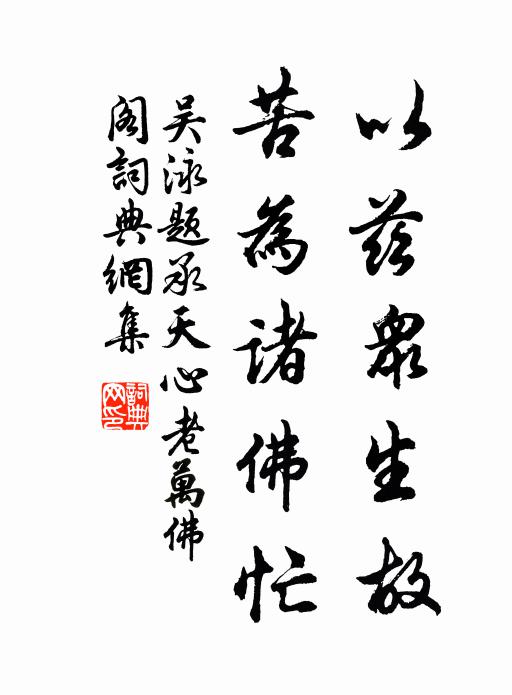 以茲衆生故
苦為諸佛忙
吴泳题承天心老萬佛
阁詞典網集
詞典
网印